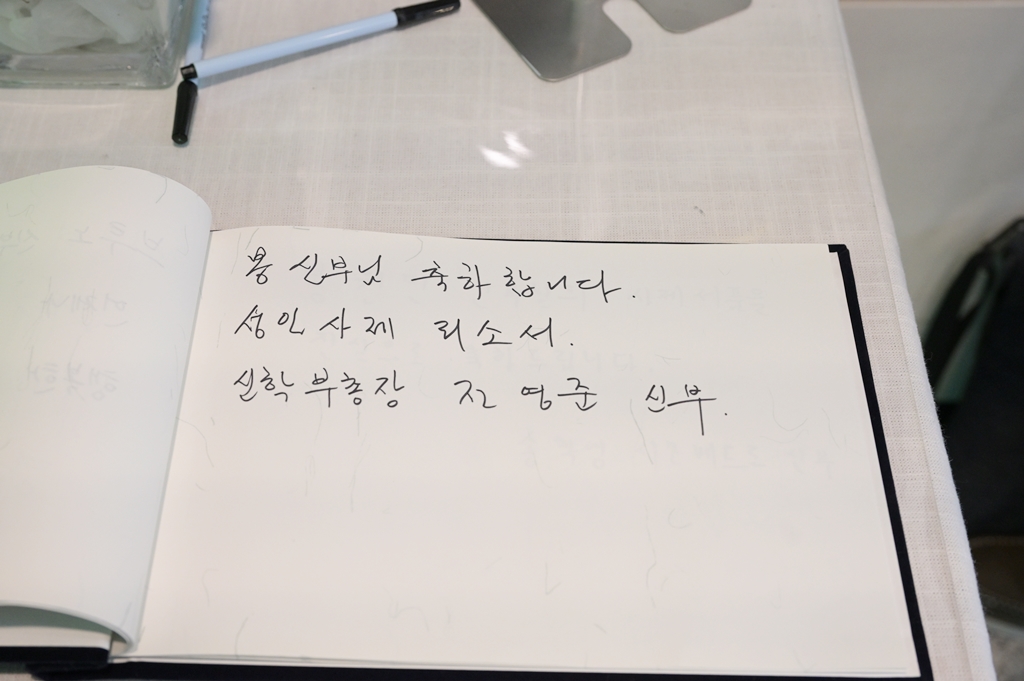 봉 신부님 축하합니다.
성인 사제 되소서.
신학부총장 전영준 신부.